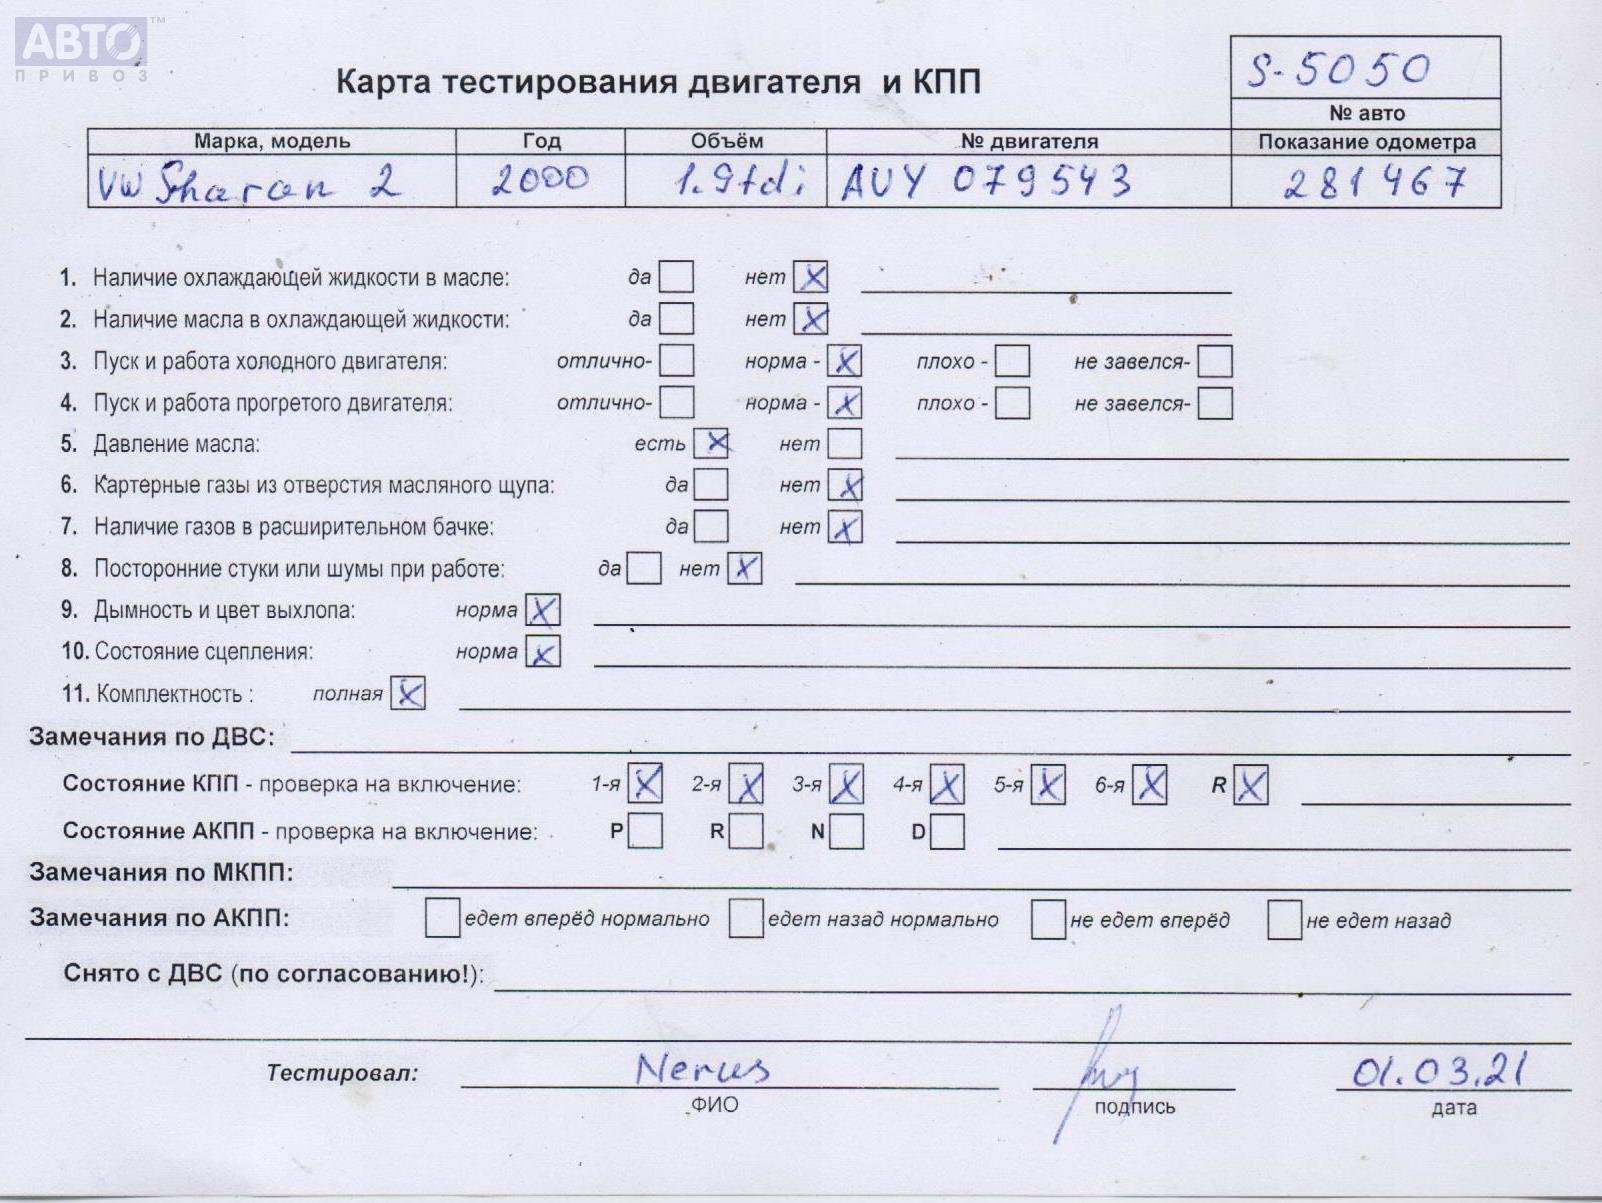 АВТО™
ПРИВОЗ
S-5050
Карта тестирования двигателя и КПП
№ авто
Марка, модель Год Объём № двигателя Показание одометра
VW Sharan 2 2000 1.9tdi AUY 079543 281467
1. Наличие охлаждающей жидкости в масле: да нет X
2. Наличие масла в охлаждающей жидкости: да нет X
3. Пуск и работа холодного двигателя: отлично- норма - X плохо - не завелся-
4. Пуск и работа прогретого двигателя: отлично- норма - X плохо - не завелся-
5. Давление масла: есть X нет
6. Картерные газы из отверстия масляного щупа: да нет X
7. Наличие газов в расширительном бачке: да нет X
8. Посторонние стуки или шумы при работе: да нет X
9. Дымность и цвет выхлопа: норма X
10. Состояние сцепления: норма X
11. Комплектность : полная X
Замечания по ДВС:
Состояние КПП - проверка на включение: 1-я X 2-я X 3-я X 4-я X 5-я X 6-я X R X
Состояние АКПП - проверка на включение: P R N D
Замечания по МКПП:
Замечания по АКПП: едет вперёд нормально едет назад нормально не едет вперёд не едет назад
Снято с ДВС (по согласованию!):
Тестировал: Nerus 01.03.21
ФИО подпись дата